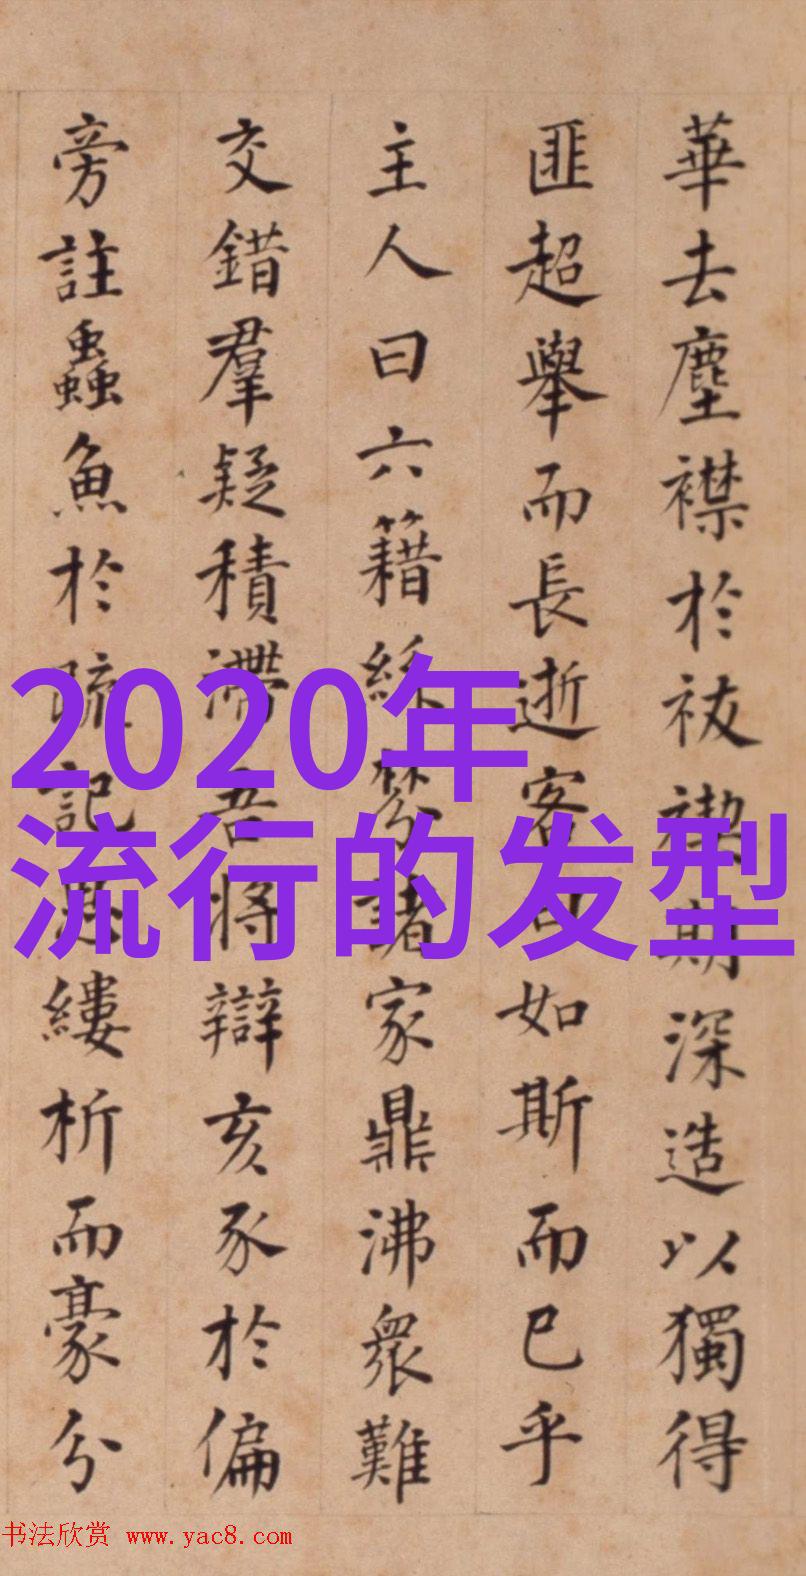 華去塵襟於袚禊期深造以獨得
匪超舉而長逝客曰如斯而已乎
主人曰六籍絲棼諸家鼎沸衆難
交錯羣疑積滯吾將辯亥豕於偏
旁註蟲魚於疏記縷析而豪分
2020年
流行的发型
书法欣赏 www.yac8.com